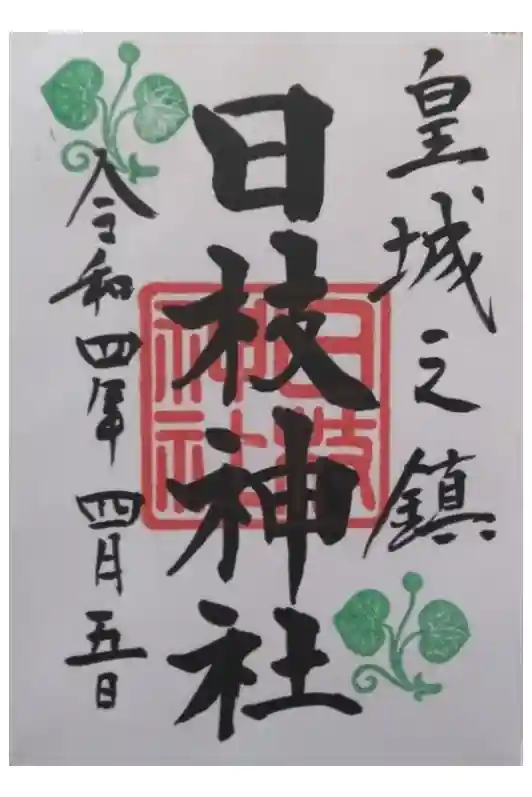 皇城之鎮
日枝神社
日枝神社
令和四年四月五日